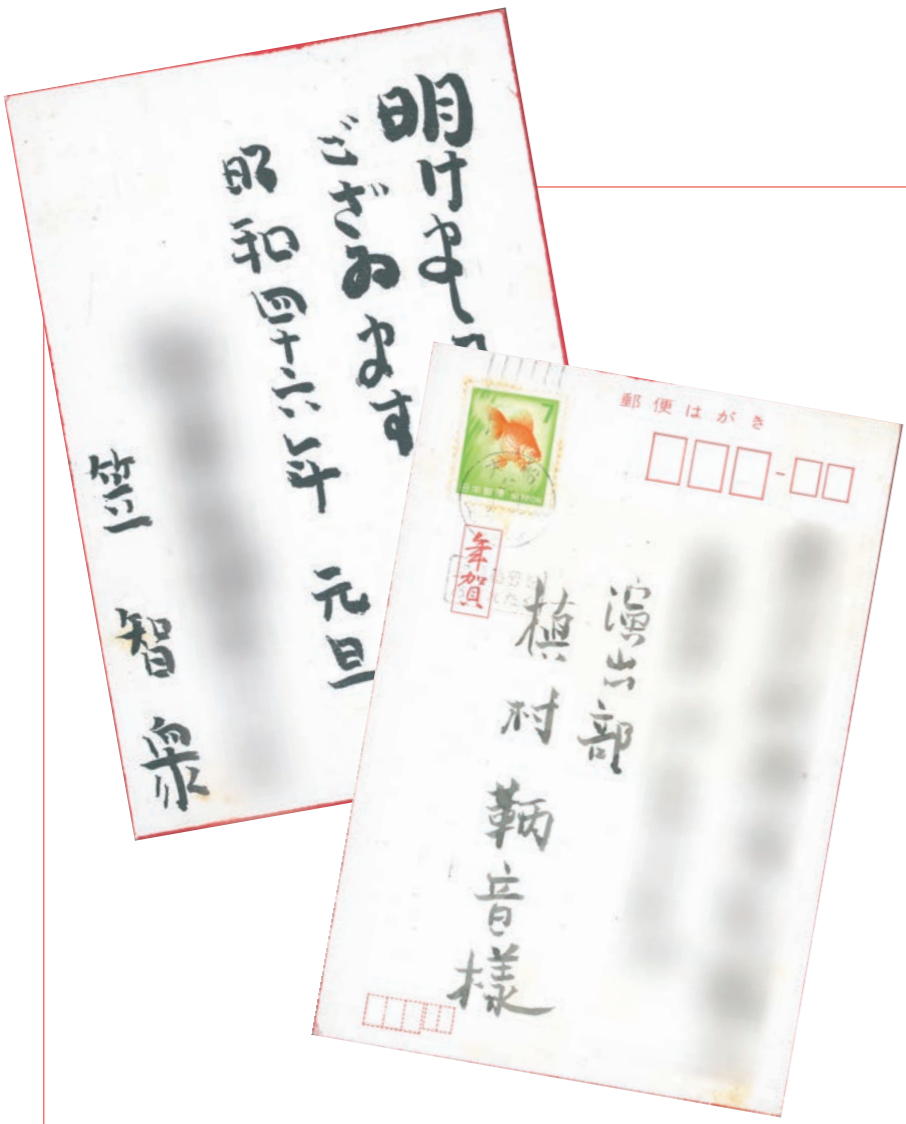 明けまし
ござゐます
昭和四十六年 元旦
笠 智衆
郵便はがき
7
日本郵便 NIPPON
年賀
演出部
植村 鞆音様